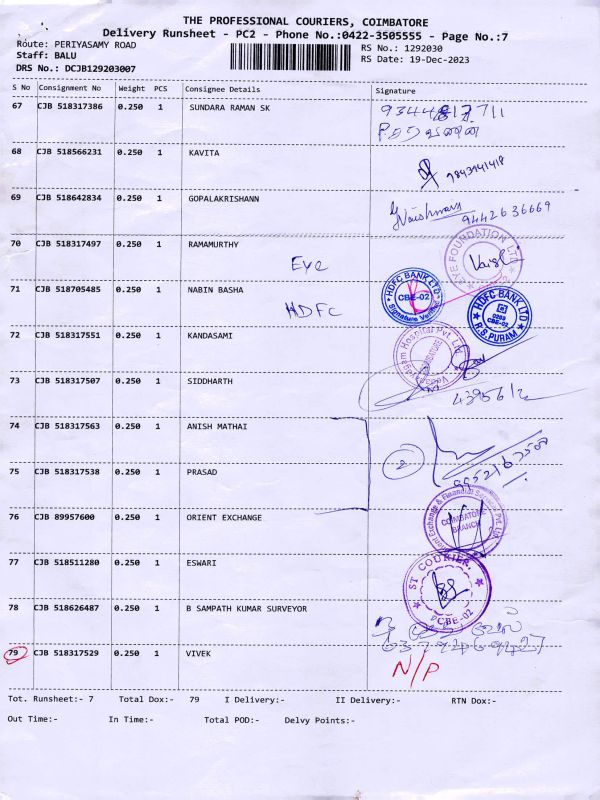 THE PROFESSIONAL COURIERS, COIMBATORE
Delivery Runsheet - PC2 - Phone No.:0422-3505555 - Page No.:7
Route: PERIYASAMY ROAD
RS No.: 1292030
Staff: BALU
RS Date: 19-Dec-2023
DRS No.: DCJB129203007
S No Consignment No Weight PCS Consignee Details Signature
67 CJB 518317386 0.250 1 SUNDARA RAMAN SK
68 CJB 518566231 0.250 1 KAVITA
69 CJB 518642834 0.250 1 GOPALAKRISHANN
Vaishnavi 9442636669
70 CJB 518317497 0.250 1 RAMAMURTHY
Eye
EYE FOUNDATION LTD
71 CJB 518705485 0.250 1 NABIN BASHA
HDFC
HDFC BANK LTD CBE-02 Signature Verified
HDFC BANK LTD CBE-02 R.S.PURAM
72 CJB 518317551 0.250 1 KANDASAMI
Hospital Pvt. Ltd. COIMBATORE
73 CJB 518317507 0.250 1 SIDDHARTH
74 CJB 518317563 0.250 1 ANISH MATHAI
2
75 CJB 518317538 0.250 1 PRASAD
76 CJB 89957600 0.250 1 ORIENT EXCHANGE
Orient Exchange & Financial Services Pvt. Ltd. COIMBATORE BRANCH
77 CJB 518511280 0.250 1 ESWARI
ST COURIER CBE-02
78 CJB 518626487 0.250 1 B SAMPATH KUMAR SURVEYOR
79 CJB 518317529 0.250 1 VIVEK
N/P
Tot. Runsheet:- 7 Total Dox:- 79 I Delivery:- II Delivery:- RTN Dox:-
Out Time:- In Time:- Total POD:- Delvy Points:-